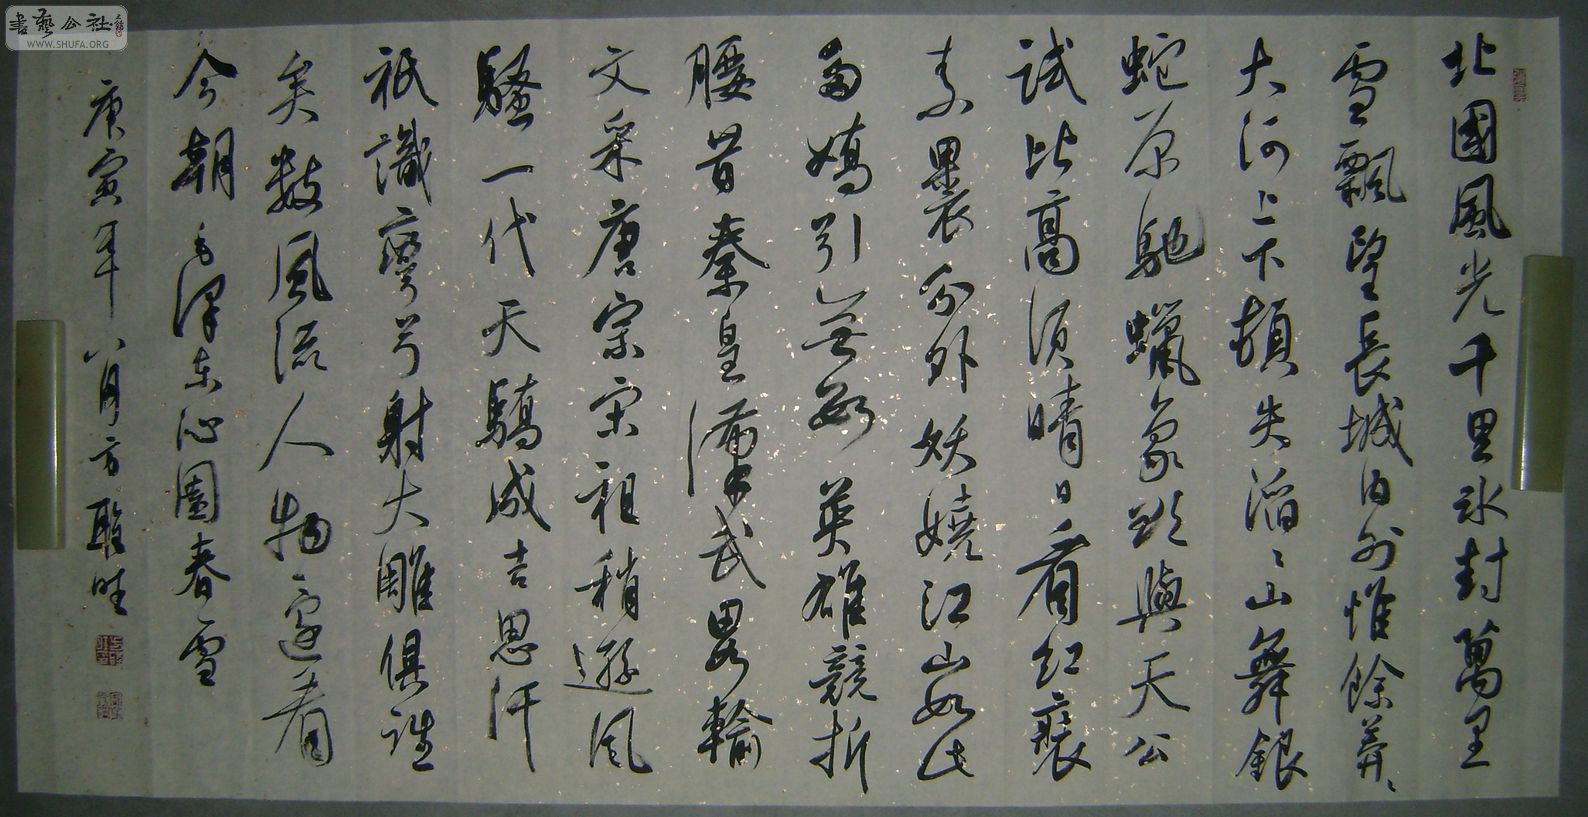 書藝公社
WWW.SHUFA.ORG
北國風光千里冰封萬里
雪飄望長城內外惟餘莽〻
大河上下頓失滔〻山舞銀
蛇原馳蠟象欲與天公
試比高須晴日看紅裝
素裹分外妖嬈江山如此
多嬌引無數英雄競折
腰昔秦皇漢武畧輸
文采唐宗宋祖稍遜風
騷一代天驕成吉思汗
祇識彎弓射大雕俱往
矣數風流人物還看
今朝毛澤東沁園春雪
庚寅年八月方